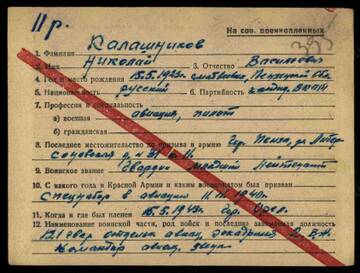 11 р.
На сов. военнопленных
1. Фамилия Калашников
2. Имя Николай 3. Отчество Васильевич
4. Год и место рождения 15.5.1923г.
5. Национальность русский 6. Партийность
7. Профессия и специальность
а) военная авиация, пилот
б) гражданская
8. Последнее местожительство до призыва в армию гор. Пенза, ул.
9. Воинское звание Гвардии младший лейтенант
10. С какого года в Красной Армии и каким военкоматом был призван
в авиации 1940г.
11. Когда и где был пленен 15.5.1943г. гор. Орел.
12. Наименование воинской части, род войск и последняя занимаемая должность
121 гвар. авиац.
Командир авиац. звена